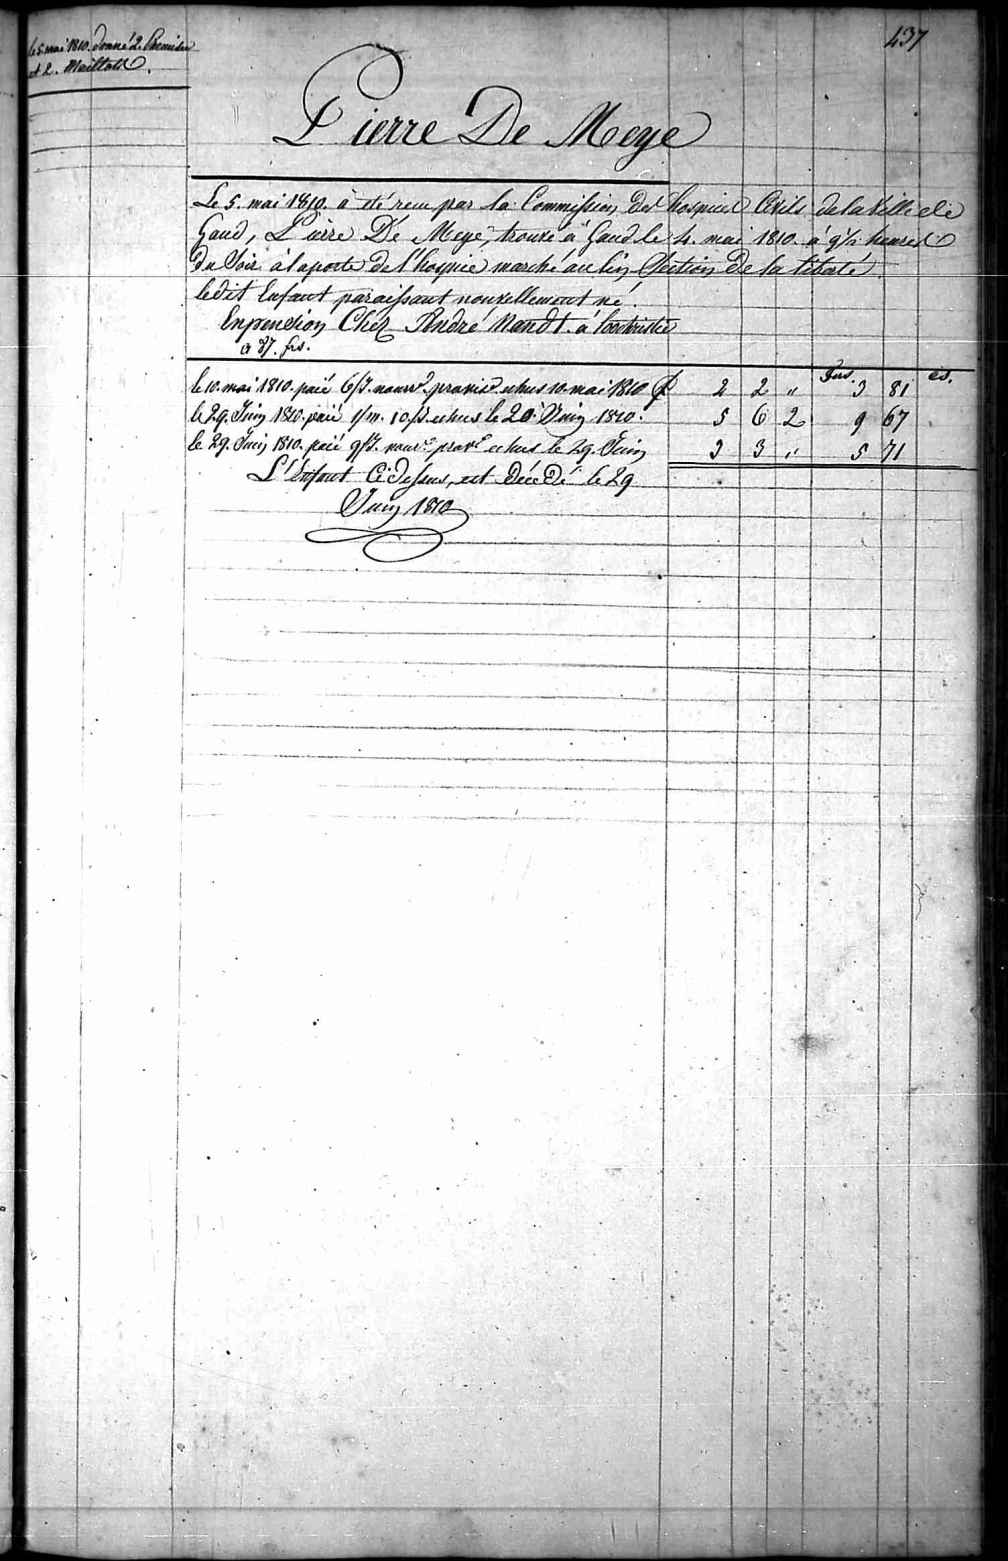 437
le 5 mai 1810. donné 2. Chemises
et 2. Maillots.
Pierre De Meye
Le 5. mai 1810. à été recu par la Commission des hospices Civils de la Ville de
Gand, Pierre De Meye, trouvé à Gand le 4. mai 1810. à 9½ heures
du Soir à la porte de l'hospice marché au lin Section de la liberté.
ledit Enfant paraissant nouvellement né.
En pension Chez André Mandt à
à 87. frs.
frs. cs.
le 10. mai 1810. paié 6/J. nourre. provisre. echus 10. mai 1810 2 2 " 3 81
le 29. Juin 1810. paié 1/m. 10/J. echus le 20 Juin 1810. 5 6 2 9 67
le 29. Juin 1810. paié 9/J. nourre. prove. echus le 29. Juin 3 3 " 5 71
L'Enfant Ci dessus, est Décédé le 29
Juin 1810